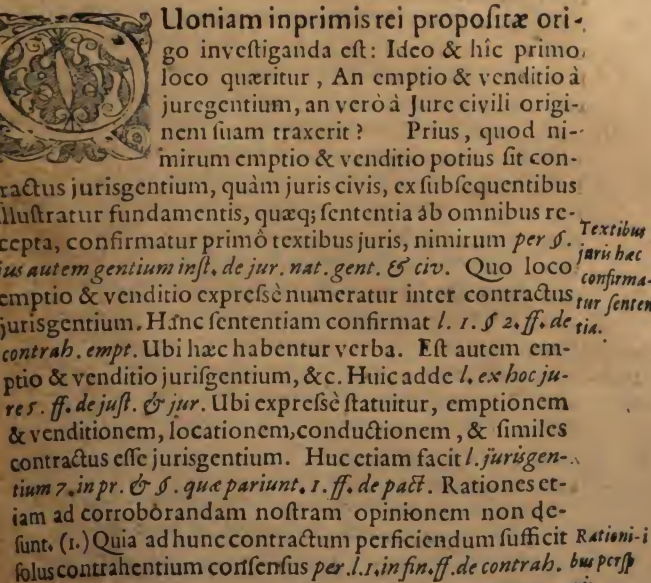 QUoniam inprimis rei propoſitæ ori-
go inveſtiganda eſt: Ideo & hîc primo
loco quæritur, An emptio & venditio à
juregentium, an verò à Jure civili origi-
nem ſuam traxerit? Prius, quod ni-
mirum emptio & venditio potius ſit con-
tractus jurisgentium, quàm juris civis, ex ſubſequentibus
illuſtratur fundamentis, quæq; ſententia ab omnibus re-
cepta, confirmatur primò textibus juris, nimirum per §.
ius autem gentium inſt. de jur. nat. gent. & civ. Quo loco
emptio & venditio expreſsè numeratur inter contractus
jurisgentium. Hanc ſententiam confirmat l. 1. § 2. ff. de
contrah. empt. Ubi hæc habentur verba. Eſt autem em-
ptio & venditio juriſgentium, &c. Huic adde l. ex hoc ju-
re 5. ff. de juſt. & jur. Ubi expreſsè ſtatuitur, emptionem
& venditionem, locationem, conductionem, & ſimiles
contractus eſſe jurisgentium. Huc etiam facit l. jurisgen-
tium 7. in pr. & §. quæ pariunt. 1. ff. de pact. Rationes et-
iam ad corroborandam noſtram opinionem non de-
ſunt. (1.) Quia ad hunc contractum perficiendum ſufficit
ſolus contrahentium conſenſus per. l. 1. in fin. ff. de contrah.
Textibus
juris hæc
confirma-
tur ſenten
tia.
Rationi-
bus